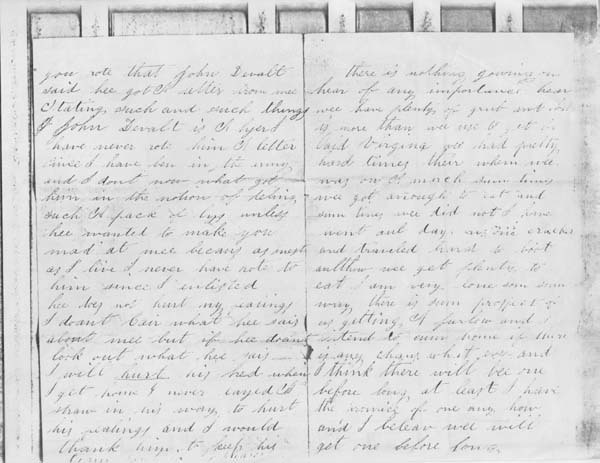 you rote that John Devalt
said hee got A letter from mee
Stating such and such things
If John Devalt is A lyer I
have never rote him A letter
since I have ben in the army
and I dont now what got
him in the notion of telling
such A pack of lys unless
hee wanted to make you
mad at mee becaus as
as I live I never have rote to
him since I enlisted
hee does not hurt my
I doant Cair what hee sais
about mee but if hee doant
look out what hee sais
I will hurt his hed when
I get home I never layed A
straw in his way to hurt
his and I would
thank him to keep his
there is nothing gowing on
hear of any importance hear
wee have plenty of grub
is more than wee use to get in
Virginy wee had pretty
hard times their when wee
was on A march sum times
wee got anough to eat and
sum times wee did not I
went out day on cracker
and traveled hard to boot
wee get plenty to
eat I am very
way there is sum prospect of
us getting A furlow and I
intend to cum home if there
is any chanc what ever and
I think there will bee one
before long at least I have
the of one any how
and I beleav wee will
get one before long